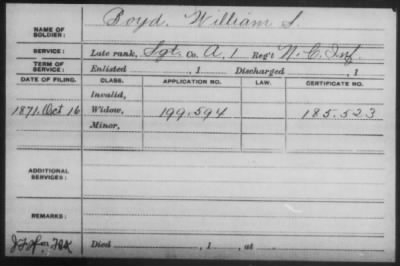 NAME OF SOLDIER: Boyd, William S.
SERVICE: Late rank, Sgt. Co. A, 1 Reg't N. C. Inf.
TERM OF SERVICE: Enlisted , 1 Discharged , 1
DATE OF FILING. CLASS. APPLICATION NO. LAW. CERTIFICATE NO.
Invalid,
1871. Oct 16 Widow, 199.594 185.523
Minor,
ADDITIONAL SERVICES:
REMARKS:
Died , 1 , at